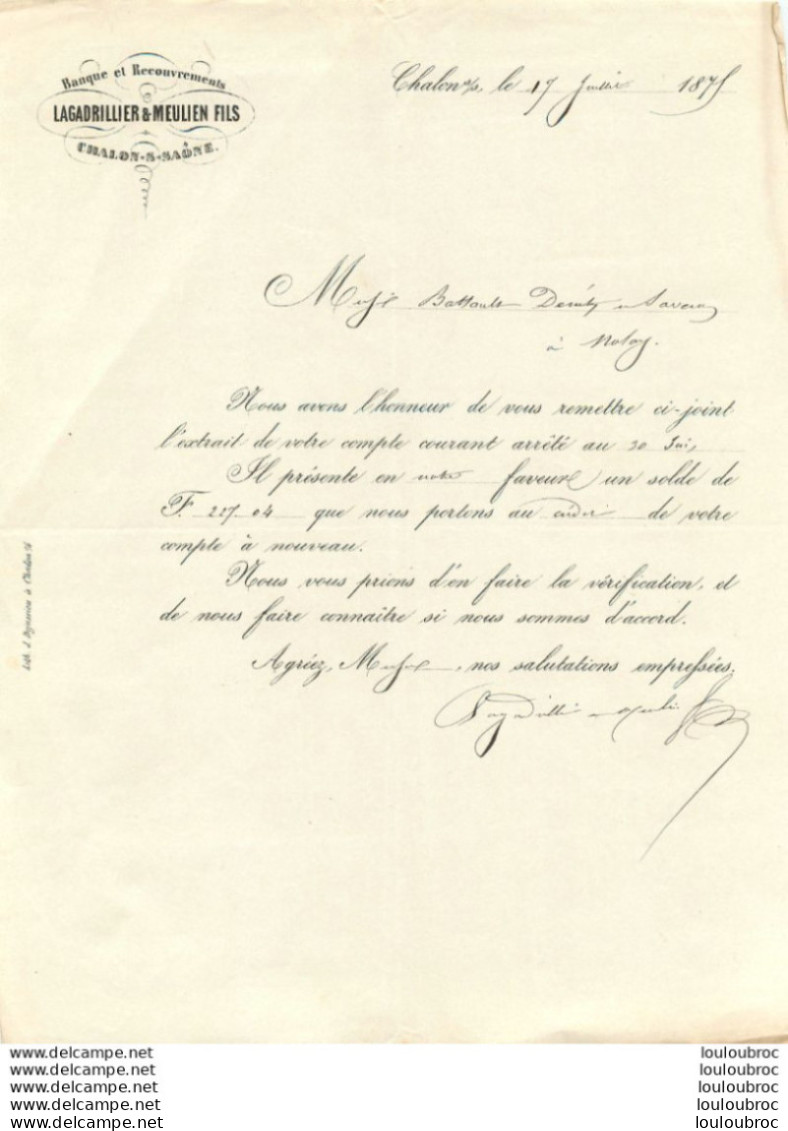 Banque et Recouvrements
LAGADRILLIER & MEULIEN FILS
CHALON-S-SAÔNE.
Chalon s/s, le 17 Juillet 1875
Battault
à Nolay.
Nous avons l'honneur de vous remettre ci-joint
l'extrait de votre compte courant arrêté au 30 Juin
Il présente en votre faveur un solde de
F. 227.04 que nous portons au crédit de votre
compte à nouveau.
Nous vous prions d'en faire la vérification, et
de nous faire connaître si nous sommes d'accord.
Agréez, nos salutations empressées.
Lagadrillier Meulien fils
Lith. à Chalon s/s
www.delcampe.net
www.delcampe.net
www.delcampe.net
www.delcampe.net
www.delcampe.net
louloubroc
louloubroc
louloubroc
louloubroc
louloubroc